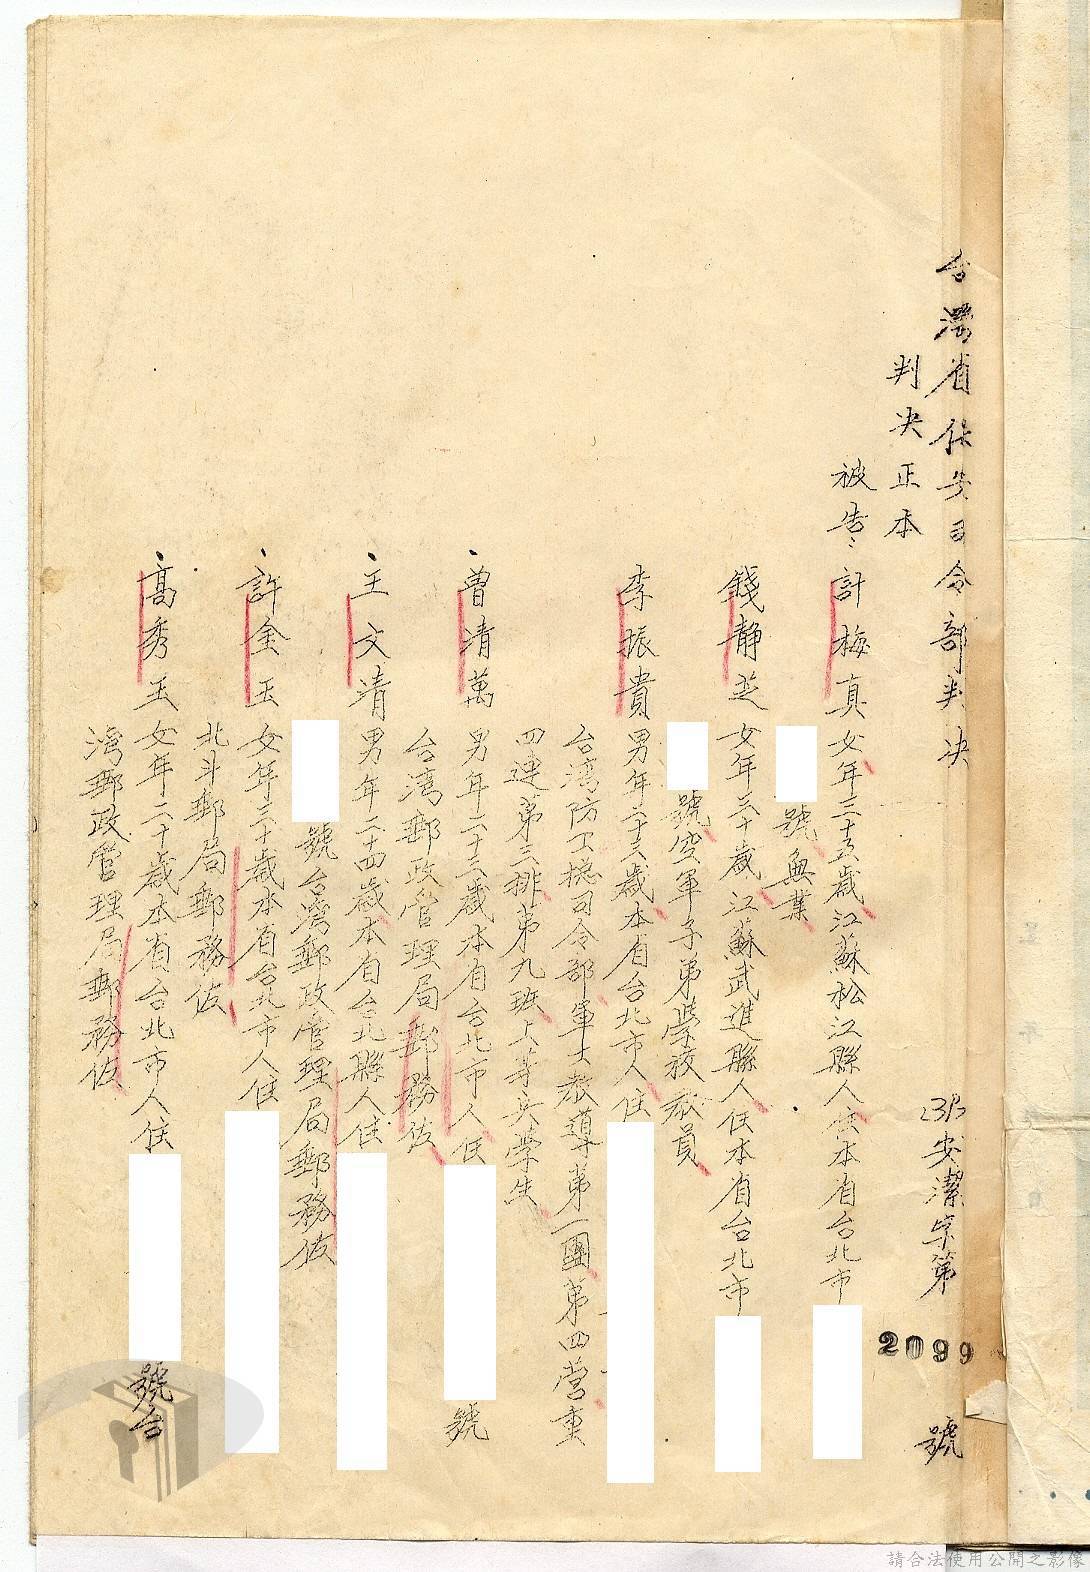 台灣省保安司令部判決
(39)安潔字第2099號
判決正本
被告 計梅真 女年三十五歲江蘇松江縣人住本省台北市
號無業
錢靜芝 女年三十歲江蘇武進縣人住本省台北市
號空軍子弟學校教員
李振貴 男年二十三歲本省台北市人住
台灣防卫總司令部軍士教導第一團第四營
四連第三排第九班上等兵學生
曾清萬 男年二十三歲本省台北市人住 號
台灣郵政管理局郵務佐
王文清 男年二十四歲本省台北縣人住
號台灣郵政管理局郵務佐
許金玉 女年三十歲本省台北市人住
北斗郵局郵務佐
高秀玉 女年二十歲本省台北市人住 號台
灣郵政管理局郵務佐
請合法使用公開之影像